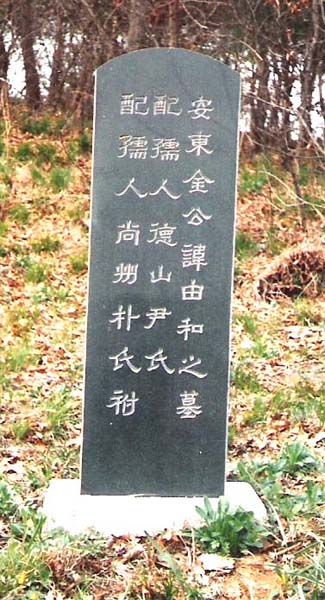 安東金公諱由和之墓
配孺人德山尹氏
配孺人尚州朴氏祔